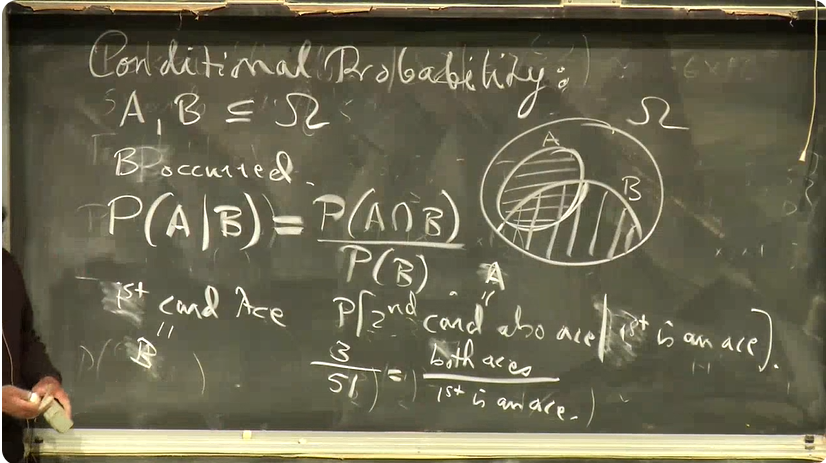 Conditional Probability:
A, B ⊆ Ω
Ω
A
B
B occurred.
P(A|B) = P(A∩B)
P(B)
A
"
1st card Ace
P[2nd card also ace | 1st is an ace].
"
B
3 = both aces
51 1st is an ace.